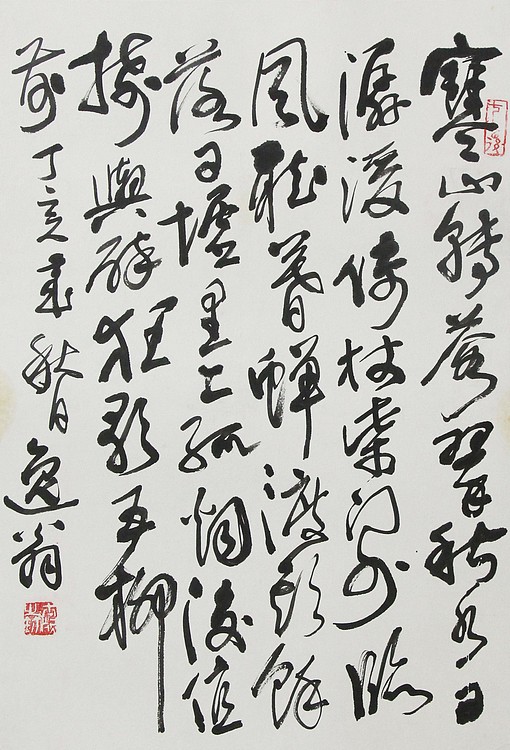 寒山轉蒼翠秋水日
潺湲倚杖柴門外臨
風聽暮蟬渡頭餘
落日墟里上孤烟復值
接輿醉狂歌五柳
前丁亥歲秋月逸翁